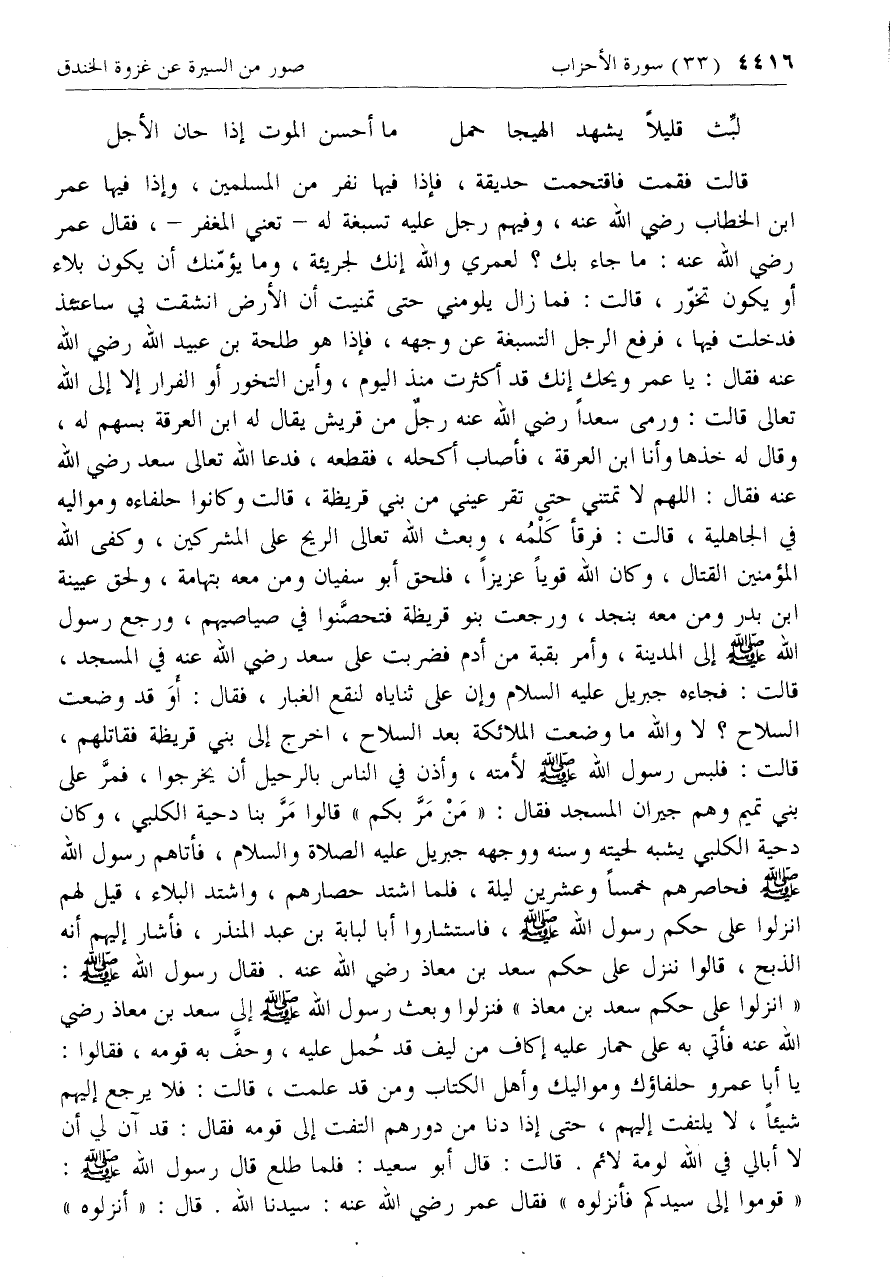 ٤٤١٦ (٣٣) سورة الأحزاب صور من السيرة عن غزوة الخندق
لبِّث قليلاً يشهد الهيجا حمل ما أحسن الموت إذا حان الأجل
قالت فقمت فاقتحمت حديقة ، فإذا فيها نفر من المسلمين ، وإذا فيها عمر
ابن الخطاب رضي الله عنه ، وفيهم رجل عليه تسبغة له – تعني المغفر – ، فقال عمر
رضي الله عنه : ما جاء بك ؟ لعمري والله إنك لجريئة ، وما يؤمّنك أن يكون بلاء
أو يكون تخوّر ، قالت : فما زال يلومني حتى تمنيت أن الأرض انشقت بي ساعتئذ
فدخلت فيها ، فرفع الرجل التسبغة عن وجهه ، فإذا هو طلحة بن عبيد الله رضي الله
عنه فقال : يا عمر ويحك إنك قد أكثرت منذ اليوم ، وأين التخور أو الفرار إلا إلى الله
تعالى قالت : ورمى سعداً رضي الله عنه رجلٌ من قريش يقال له ابن العرقة بسهم له ،
وقال له خذها وأنا ابن العرقة ، فأصاب أكحله ، فقطعه ، فدعا الله تعالى سعد رضي الله
عنه فقال : اللهم لا تمتني حتى تقر عيني من بني قريظة ، قالت وكانوا حلفاءه ومواليه
في الجاهلية ، قالت : فرقأ كَلْمُه ، وبعث الله تعالى الريح على المشركين ، وكفى الله
المؤمنين القتال ، وكان الله قوياً عزيزاً ، فلحق أبو سفيان ومن معه بتهامة ، ولحق عيينة
ابن بدر ومن معه بنجد ، ورجعت بنو قريظة فتحصَّنوا في صياصيهم ، ورجع رسول
الله ﷺ إلى المدينة ، وأمر بقبة من أدم فضربت على سعد رضي الله عنه في المسجد ،
قالت : فجاءه جبريل عليه السلام وإن على ثناياه لنقع الغبار ، فقال : أَوَ قد وضعت
السلاح ؟ لا والله ما وضعت الملائكة بعد السلاح ، اخرج إلى بني قريظة فقاتلهم ،
قالت : فلبس رسول الله ﷺ لأمته ، وأذن في الناس بالرحيل أن يخرجوا ، فمرَّ على
بني تميم وهم جيران المسجد فقال : « مَنْ مَرَّ بكم » قالوا مَرَّ بنا دحية الكلبي ، وكان
دحية الكلبي يشبه لحيته وسنه ووجهه جبريل عليه الصلاة والسلام ، فأتاهم رسول الله
ﷺ فحاصرهم خمساً وعشرين ليلة ، فلما اشتد حصارهم ، واشتد البلاء ، قيل لهم
انزلوا على حكم رسول الله ﷺ ، فاستشاروا أبا لبابة بن عبد المنذر ، فأشار إليهم أنه
الذبح ، قالوا ننزل على حكم سعد بن معاذ رضي الله عنه . فقال رسول الله ﷺ :
« انزلوا على حكم سعد بن معاذ » فنزلوا وبعث رسول الله ﷺ إلى سعد بن معاذ رضي
الله عنه فأتي به على حمار عليه إكاف من ليف قد حُمل عليه ، وحفَّ به قومه ، فقالوا :
يا أبا عمرو حلفاؤك ومواليك وأهل الكتاب ومن قد علمت ، قالت : فلا يرجع إليهم
شيئاً ، لا يلتفت إليهم ، حتى إذا دنا من دورهم التفت إلى قومه فقال : قد آن لي أن
لا أبالي في الله لومة لائم . قالت : قال أبو سعيد : فلما طلع قال رسول الله ﷺ :
« قوموا إلى سيدكم فأنزلوه » فقال عمر رضي الله عنه : سيدنا الله . قال : « أنزلوه »